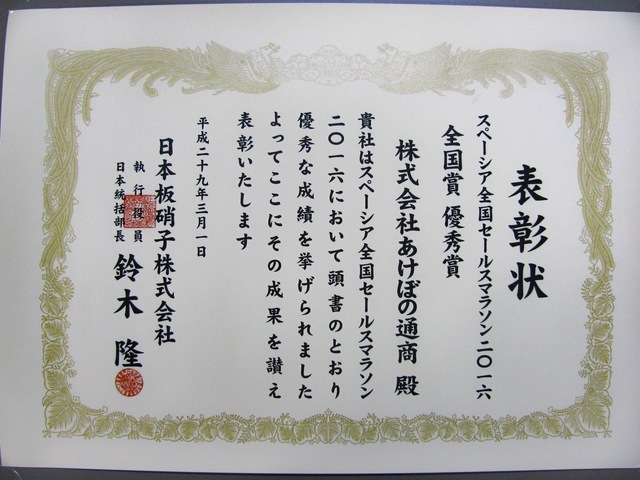 表彰状
スペーシア全国セールスマラソン二〇一六
全国賞 優秀賞
株式会社あけぼの通商 殿
貴社はスペーシア全国セールスマラソン
二〇一六において頭書のとおり
優秀な成績を挙げられました
よってここにその成果を讃え
表彰いたします
平成二十九年三月一日
日本板硝子株式会社
執行役員
日本統括部長 鈴木 隆